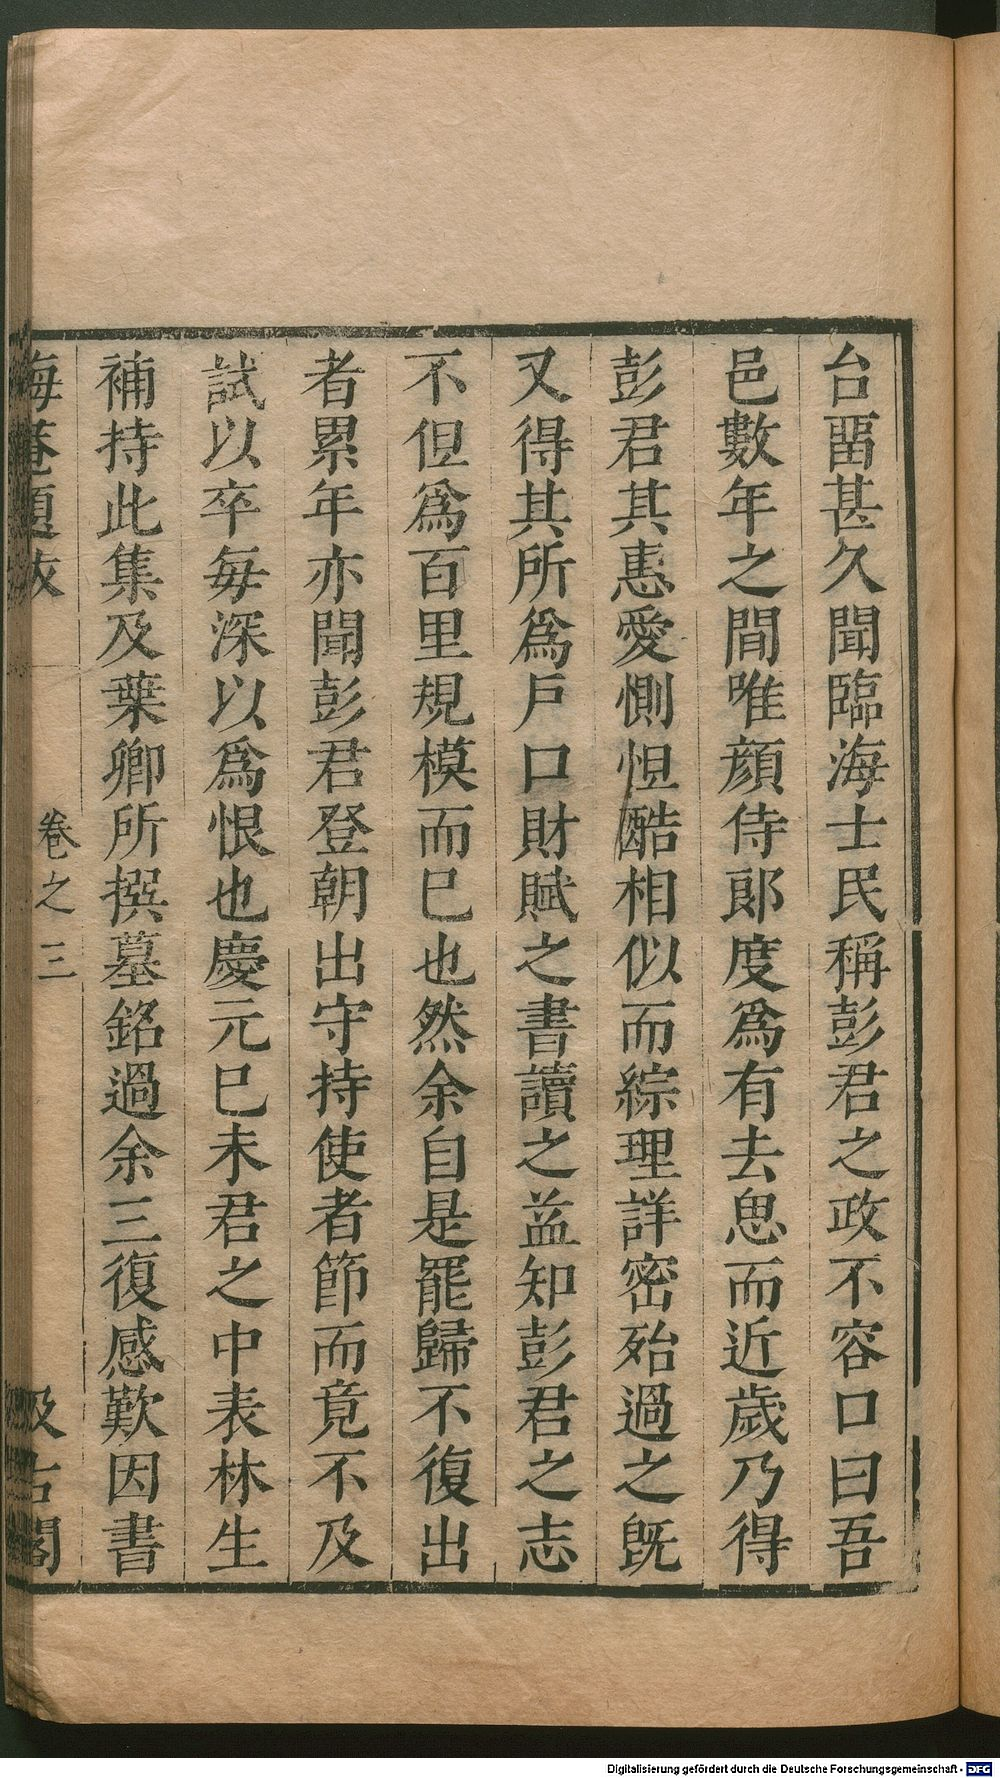 台畱甚久聞臨海士民稱彭君之政不容口曰吾
邑數年之間唯顔侍郎度爲有去思而近歲乃得
彭君其惠愛惻怛酷相似而綜理詳密殆過之旣
又得其所爲戶口財賦之書讀之益知彭君之志
不但爲百里規模而巳也然余自是罷歸不復出
者累年亦聞彭君登朝出守持使者節而竟不及
試以卒每深以爲恨也慶元巳未君之中表林生
補持此集及葉卿所撰墓銘過余三復感歎因書
晦菴題跋
卷之三
汲古閣
Digitalisierung gefördert durch die Deutsche Forschungsgemeinschaft - DFG